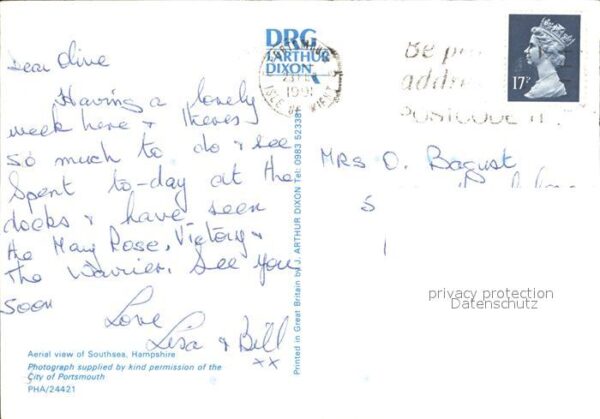 DRG
J.ARTHUR
DIXON
1991
ISLE OF WIGHT
Be
addre
POSTCODE IT
17P
Dear Olive
Having a lovely
week here & theres
so much to do & see
Spent to-day at the
docks & have seen
the Mary Rose, Victory &
The Warrier. See you
soon
Love
Lisa & Bill
xx
MRS O. Bagust
S
privacy protection
Datenschutz
Printed in Great Britain by J. ARTHUR DIXON Tel: 0983 523381
Aerial view of Southsea, Hampshire
Photograph supplied by kind permission of the
City of Portsmouth
PHA/24421